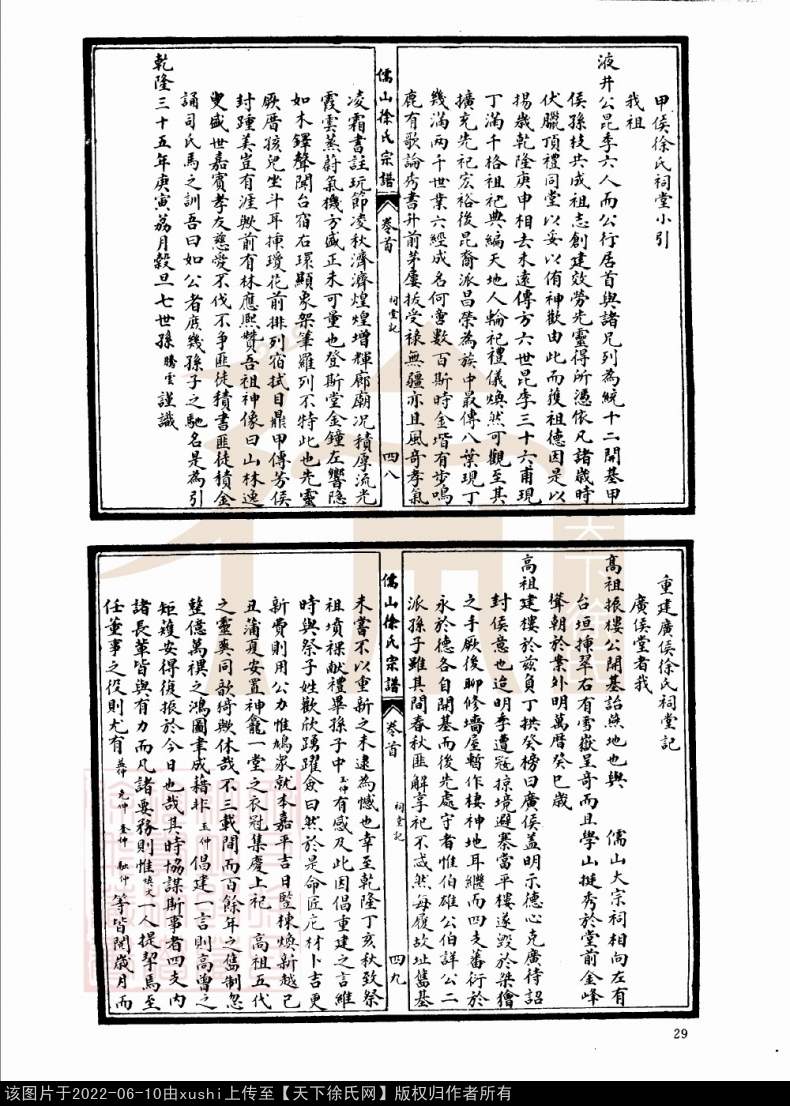 甲侯徐氏祠堂小引
我祖
液井公昆季六人而公行居首與諸兄列為統十二開基甲
侯孫枝共成祖志創建效勞先靈得所憑依凡諸歲時
伏臘頂禮同堂以妥以侑神歡由此而獲祖德因是以
揚幾乾隆庚申相去未遠傳方六世昆季三十六甫現
丁滿千格祖祀典編天地人輪祀禮儀煥然可觀至其
擴充先祀宏裕後昆裔派昌榮為族中最傳八葉現丁
幾滿兩千世業六經成名何啻數百斯時金堦有步鳴
鹿有歌論秀書升前茅屢拔受祿無疆亦且風奇孝氣
儒山徐氏宗譜
卷首
祠堂記
四八
凌霜書註玩節凌秋濟濟煌煌增輝廊廟况積厚流光
霞雲蒸蔚氣機方盛正未可量也登斯堂金鐘左響隱
如木鐸聲聞台宿右環顯象架筆羅列不特此也先靈
厥厝孩兒坐斗耳揷瓊花前排列宿拭目鼎甲傳芳侯
封踵美豈有涯歟前有林應熙贊吾祖神像曰山林逸
叟盛世嘉賓孝友慈愛不伐不爭匪徒積書匪徒積金
誦司氏馬之訓吾曰如公者庶幾孫子之馳名是為引
乾隆三十五年庚寅荔月穀旦七世孫騰雲謹識
重建廣侯徐氏祠堂記
廣侯堂者我
高祖振樓公開基詒燕地也與 儒山大宗祠相向左有
台垣揷翠右有雪嶽呈奇而且學山挺秀於堂前金峰
聳朝於業外明萬曆癸巳歲
高祖建樓於茲負丁拱癸榜曰廣侯蓋明示德心克廣待詔
封侯意也迨明季遭寇掠境避寨當平樓遂毀於桀獪
之手厥後聊修墻屋暫作棲神地耳繼而四支蕃衍於
永於德各自開基而後先處守者惟伯雄公伯詳公二
派孫子雖其間春秋匪解享祀不忒然每履故址舊基
儒山徐氏宗譜
卷首
祠堂記
四九
未嘗不以重新之未逮為憾也幸至乾隆丁亥秋致祭
祖墳祼献禮畢孫子中玉仲有感及此因倡重建之言維
時與祭子姓歡欣踴躍僉曰然於是命匠庀材卜吉更
新費則用公力惟鳩衆就本嘉平吉日豎棟煥新越己
丑蒲夏安置神龕一堂之衣冠集慶上祀 高祖五代
之靈爽同歆猗歟休哉不三載間而百餘年之舊制忽
整億萬禩之鴻圖聿成藉非玉仲倡建一言則高曾之
矩矱安得復振於今日也哉其時協謀斯事者四支内
諸長輩皆與有力而凡諸要務則惟 一人提挈焉至
任董事之役則尤有 等皆閱歲月而
29
该图片于2022-06-10由xushi上传至【天下徐氏网】版权归作者所有